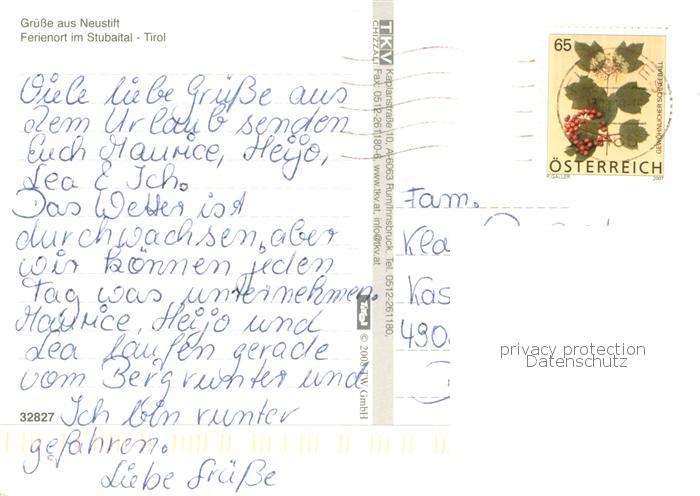 Grüße aus Neustift
Ferienort im Stubaital - Tirol
Viele liebe Grüße aus
dem Urlaub senden
Euch Maurice, Heijo,
Lea & Ich.
Das Wetter ist
durchwachsen, aber
wir können jeden
Tag was unternehmen.
Maurice, Heijo und
Lea laufen gerade
vom Berg runter und
Ich bin runter
gefahren.
Liebe Grüße
32827
TKV
CHIZZALI
Kaplanstraße 10, A-6063 Rum/Innsbruck, Tel. 0512-261180,
Fax: 0512-261180-6, www.tkv.at, info@tkv.at
Tirol
© 2008 TW GmbH
65
GEWÖHNLICHER SCHNEEBALL
ÖSTERREICH
R.GALLER
2007
Fam.
Kla
Kas
490
privacy protection
Datenschutz